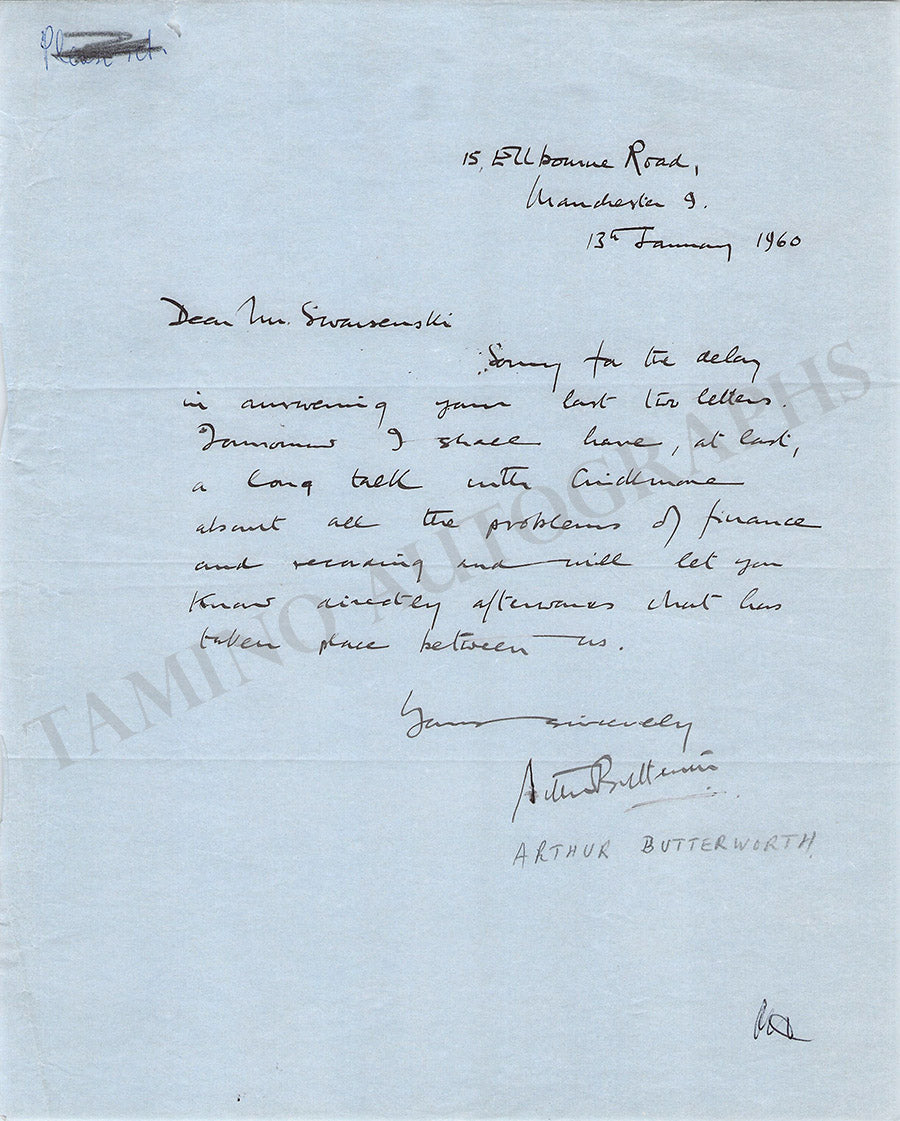 Please ret.
15, Ellbourne Road,
Manchester 9.
13th January 1960
Dear Mr. Swarsenski
Sorry for the delay
in answering your last two letters.
Tomorrow I shall have, at last,
a long talk with Crickmore
about all the problems of finance
and recording and will let you
know directly afterwards what has
taken place between us.
Yours sincerely
Arthur Butterworth
ARTHUR BUTTERWORTH
TAMINO AUTOGRAPHS